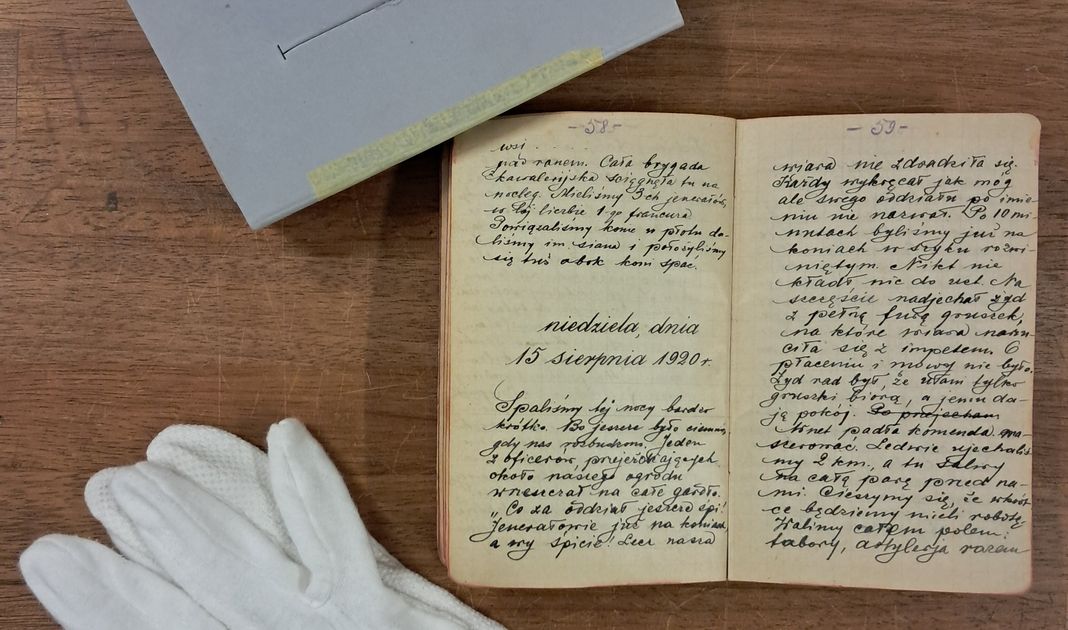 -58-
wsi
nad ranem. Cała brygada
kawaleryjska ściągnęła tu na
nocleg. Mieliśmy 3ch jenerałów,
w tej liczbie 1-go francuza
Powiązaliśmy konie u płotu da-
liśmy im siana i położyliśmy
się tuż obok koni spać.
niedziela, dnia
15 sierpnia 1920 r.
Spaliśmy tej nocy bardzo
krótko. Bo jeszcze było ciemno,
gdy nas rozbudzono. Jeden
z oficerów, przejeżdżających
około naszego ogrodu
wrzeszczał na całe gardło.
„Co za oddział jeszcze śpi!
Jenerałowie już na koniach
a wy śpicie! Lecz nasza
-59-
wiara nie zdradziła się.
Każdy wykręcał jak móg
ale swego oddziału po imie-
niu nie nazwał. Po 10 mi-
nutach byliśmy już na
koniach w szyku rozwi-
niętym. Nikt nie
kładł nic do ust. Na
szczęście nadjechał żyd
z pełną furą gruszek,
na które wiara narzu
ciła się z impetem. O
płaceniu i mowy nie było.
Żyd rad był, że ułani tylko
gruszki biorą, a jemu da-
ją pokój. Po przejechan
Wnet padła komenda ma-
szerować. Ledwie ujechaliś
my 2 km., a tu salwy
na całą parę przed na-
mi. Cieszymy się, że wkrót
ce będziemy mieli robotę.
Walimy całem polem:
tabory, artylerja razem